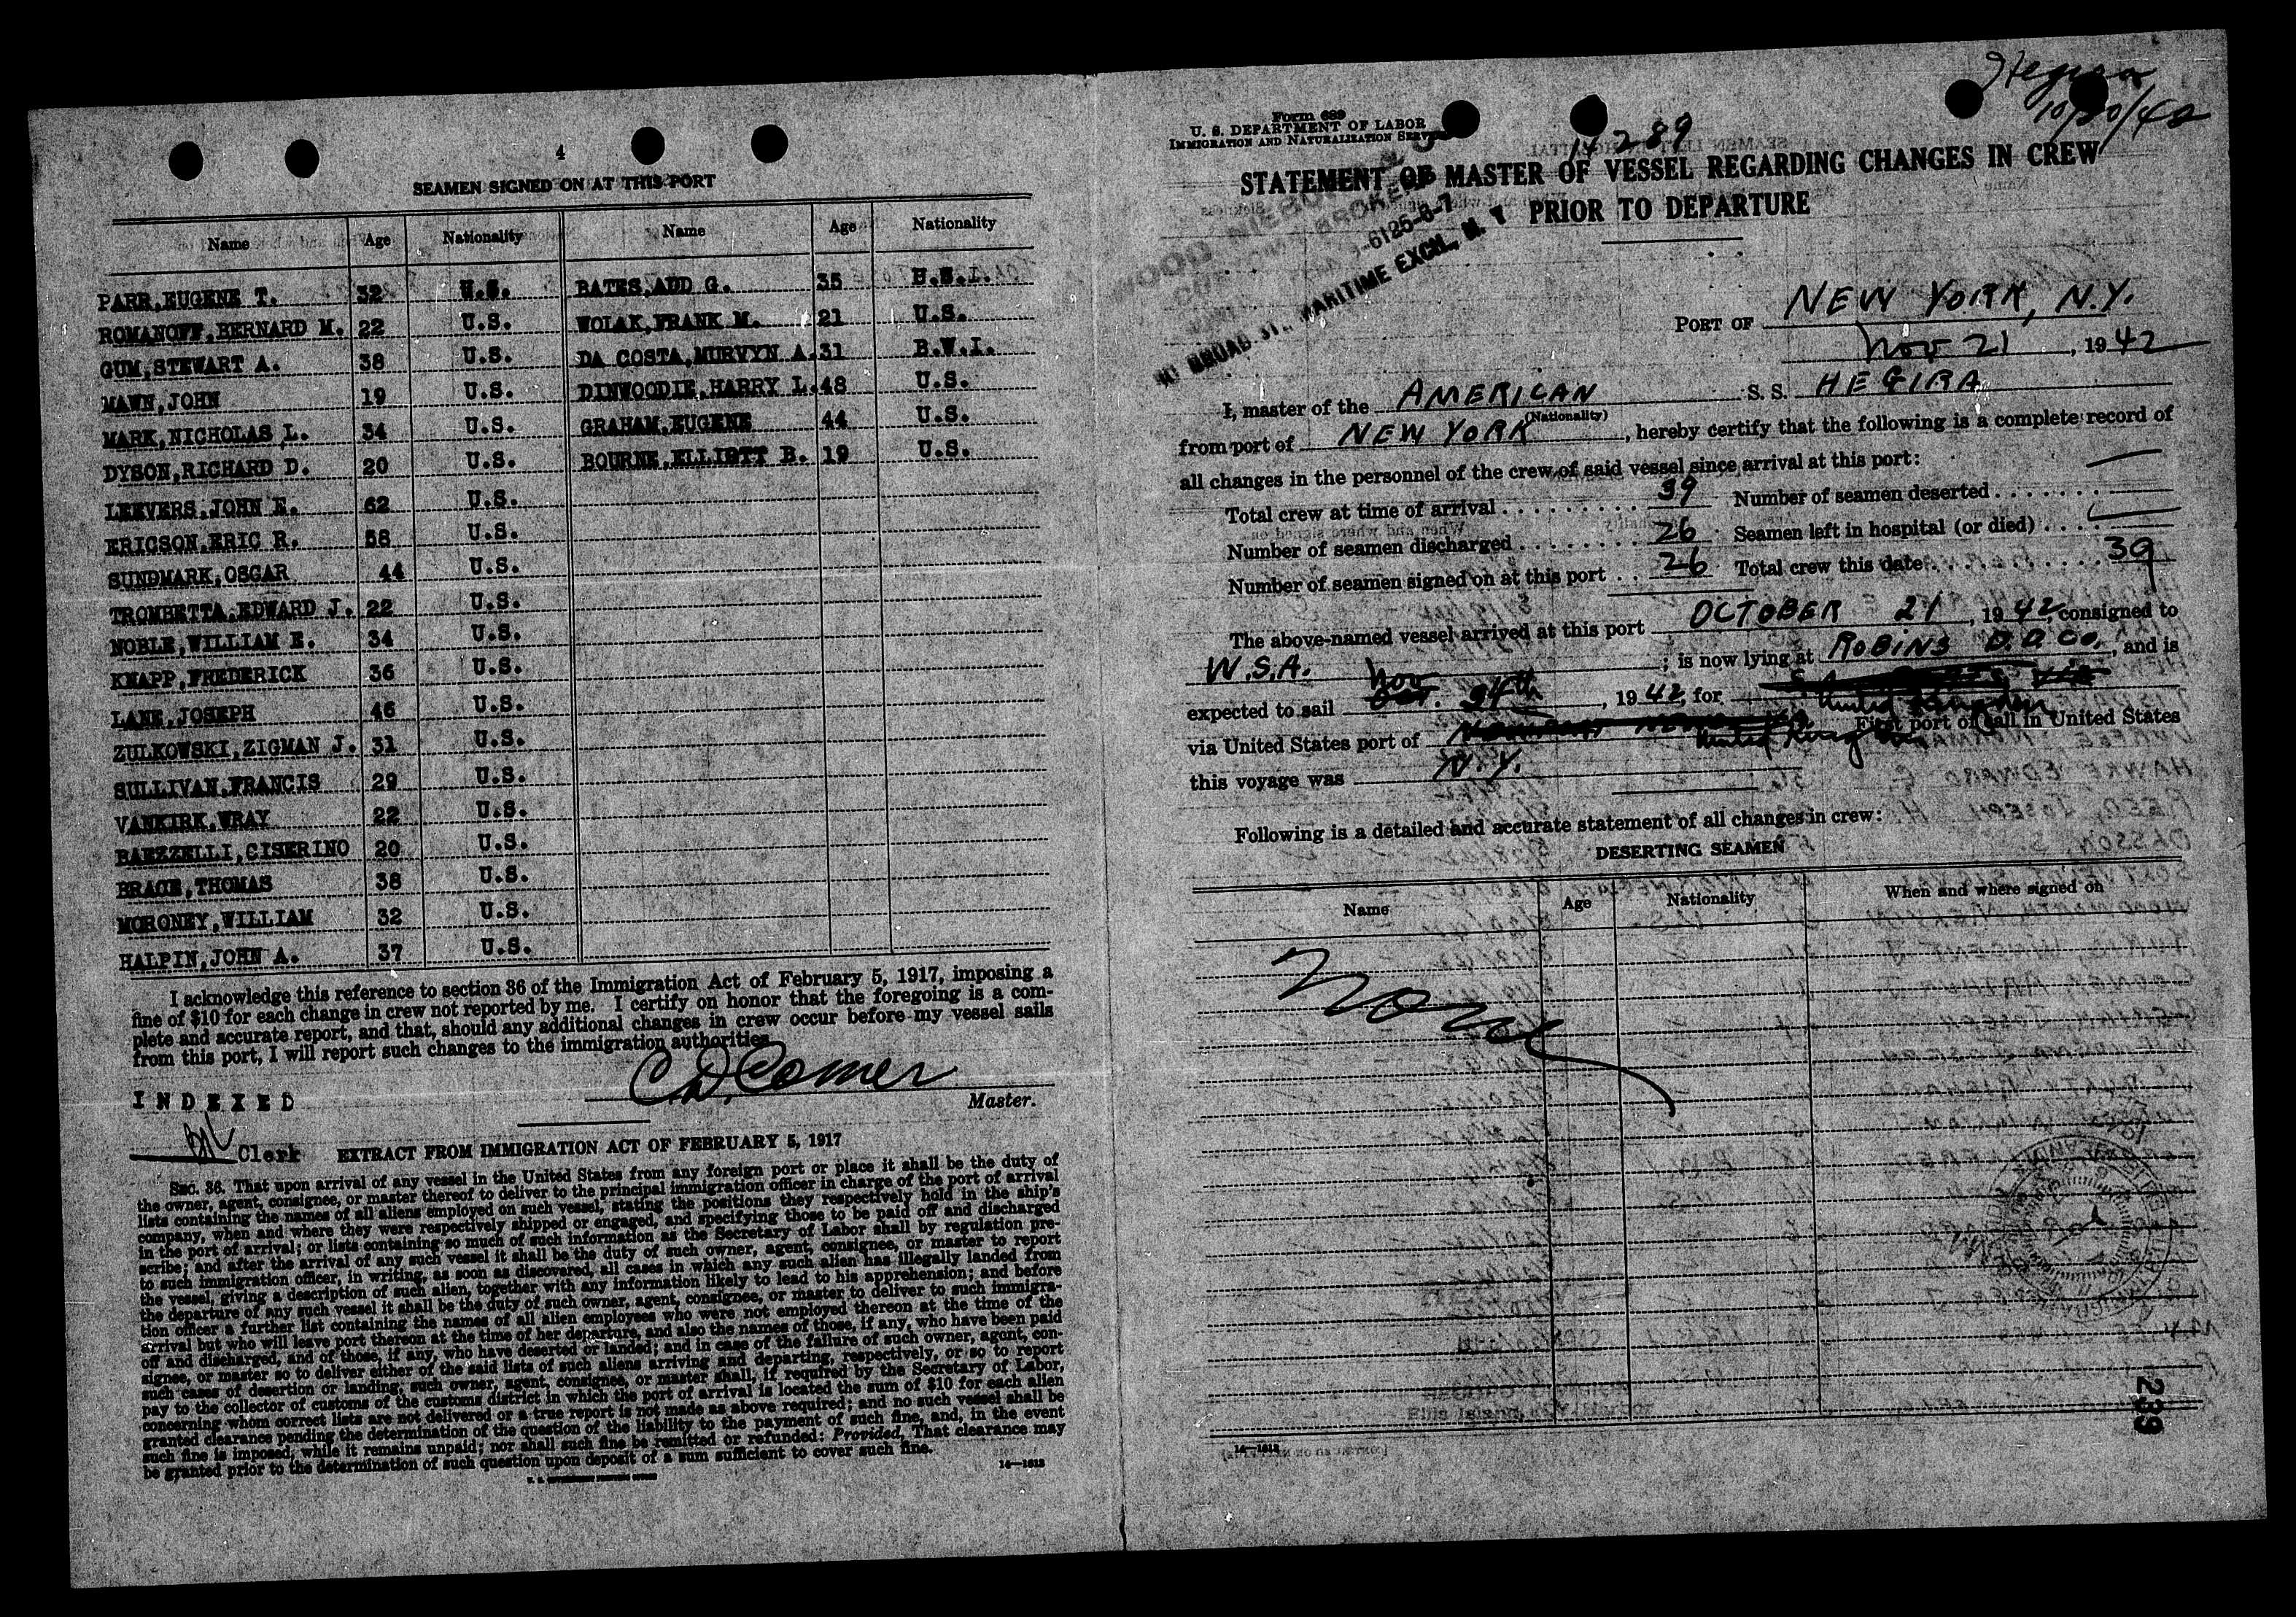 4
SEAMEN SIGNED ON AT THIS PORT
Name Age Nationality Name Age Nationality
PARR, EUGENE T. 32 U.S. BATES, ADD G. 35
ROMANOFF, BERNARD M. 22 U.S. WOLAK, FRANK M. 21 U.S.
GUM, STEWART A. 38 U.S. DA COSTA, MURVYN A. 31 B.W.I.
MAWN, JOHN 19 U.S. DINWOODIE, HARRY L. 48 U.S.
MARK, NICHOLAS L. 34 U.S. GRAHAM, EUGENE 44 U.S.
DYSON, RICHARD D. 20 U.S. BOURNE, ELLIOTT B. 19 U.S.
LEEVERS, JOHN E. 62 U.S.
ERICSON, ERIC R. 58 U.S.
SUNDMARK, OSCAR 44 U.S.
TROMBETTA, EDWARD J. 22 U.S.
NOBLE, WILLIAM E. 34 U.S.
KNAPP, FREDERICK 36 U.S.
LANE, JOSEPH 46 U.S.
ZULKOWSKI, ZIGMAN J. 31 U.S.
SULLIVAN, FRANCIS 29 U.S.
VANKIRK, WRAY 22 U.S.
BAEZZELLI, CISERINO 20 U.S.
BRACE, THOMAS 38 U.S.
MORONEY, WILLIAM 32 U.S.
HALPIN, JOHN A. 37 U.S.
I acknowledge this reference to section 36 of the Immigration Act of February 5, 1917, imposing a
fine of $10 for each change in crew not reported by me. I certify on honor that the foregoing is a com-
plete and accurate report, and that, should any additional changes in crew occur before my vessel sails
from this port, I will report such changes to the immigration authorities.
C.D. Comer
Master.
INDEXED
Clerk
EXTRACT FROM IMMIGRATION ACT OF FEBRUARY 5, 1917
SEC. 36. That upon arrival of any vessel in the United States from any foreign port or place it shall be the duty of
the owner, agent, consignee, or master thereof to deliver to the principal immigration officer in charge of the port of arrival
lists containing the names of all aliens employed on such vessel, stating the positions they respectively hold in the ship's
company, when and where they were respectively shipped or engaged, and specifying those to be paid off and discharged
in the port of arrival; or lists containing so much of such information as the Secretary of Labor shall by regulation pre-
scribe; and after the arrival of any such vessel it shall be the duty of such owner, agent, consignee, or master to report
to such immigration officer, in writing, as soon as discovered, all cases in which any such alien has illegally landed from
the vessel, giving a description of such alien, together with any information likely to lead to his apprehension; and before
the departure of any such vessel it shall be the duty of such owner, agent, consignee, or master to deliver to such immigra-
tion officer a further list containing the names of all alien employees who were not employed thereon at the time of the
arrival but who will leave port thereon at the time of her departure, and also the names of those, if any, who have been paid
off and discharged, and of those, if any, who have deserted or landed; and in case of the failure of such owner, agent, con-
signee, or master so to deliver either of the said lists of such aliens arriving and departing, respectively, or so to report
such cases of desertion or landing, such owner, agent, consignee, or master shall, if required by the Secretary of Labor,
pay to the collector of customs of the customs district in which the port of arrival is located the sum of $10 for each alien
concerning whom correct lists are not delivered or a true report is not made as above required; and no such vessel shall be
granted clearance pending the determination of the question of the liability to the payment of such fine, and, in the event
such fine is imposed, while it remains unpaid; nor shall such fine be remitted or refunded: Provided, That clearance may
be granted prior to the determination of such question upon deposit of a sum sufficient to cover such fine.
U. S. GOVERNMENT PRINTING OFFICE 14—1613
Hegira
10/20/42
Form 689
U. S. DEPARTMENT OF LABOR
IMMIGRATION AND NATURALIZATION SERVICE
14289
STATEMENT OF MASTER OF VESSEL REGARDING CHANGES IN CREW
PRIOR TO DEPARTURE
6125-6-7
BROAD ST., MARITIME EXCH., N. Y.
PORT OF NEW YORK, N.Y.
Nov 21, 1942
I, master of the AMERICAN S. S. HEGIRA
(Nationality)
from port of NEW YORK, hereby certify that the following is a complete record of
all changes in the personnel of the crew of said vessel since arrival at this port:
Total crew at time of arrival 39 Number of seamen deserted —
Number of seamen discharged 26 Seamen left in hospital (or died) —
Number of seamen signed on at this port 26 Total crew this date 39
The above-named vessel arrived at this port OCTOBER 21, 1942, consigned to
W.S.A.; is now lying at ROBINS D.D. Co., and is
expected to sail Nov 24th, 1942, for United Kingdom
via United States port of United Kingdom First port of call in United States
this voyage was N.Y.
Following is a detailed and accurate statement of all changes in crew:
DESERTING SEAMEN
Name Age Nationality When and where signed on
None
239
14—1613